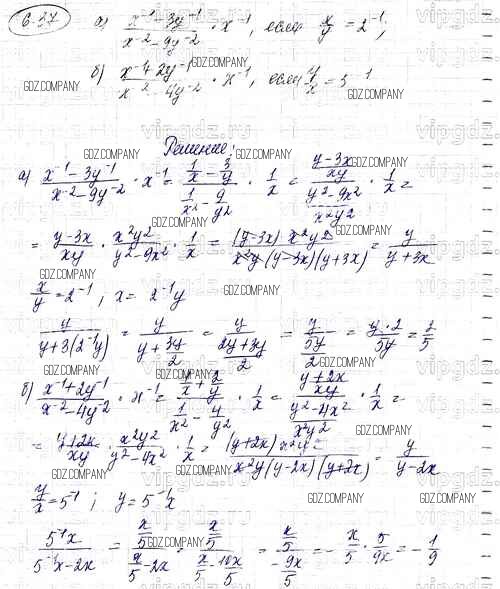 6.37 а) \frac{x^{-1}-3y^{-1}}{x^{-2}-9y^{-2}} · x^{-1}, если \frac{x}{y} = 2^{-1};
б) \frac{x^{-1}+2y^{-1}}{x^{-2}-4y^{-2}} · x^{-1}, если \frac{y}{x} = 5^{-1}
Решение:
а) \frac{x^{-1}-3y^{-1}}{x^{-2}-9y^{-2}} · x^{-1} = \frac{\frac{1}{x}-\frac{3}{y}}{\frac{1}{x^2}-\frac{9}{y^2}} · \frac{1}{x} = \frac{\frac{y-3x}{xy}}{\frac{y^2-9x^2}{x^2y^2}} · \frac{1}{x} =
= \frac{y-3x}{xy} · \frac{x^2y^2}{y^2-9x^2} · \frac{1}{x} = \frac{(y-3x) x^2y^2}{x^2y(y-3x)(y+3x)} = \frac{y}{y+3x}
\frac{x}{y} = 2^{-1}, x = 2^{-1}y
\frac{y}{y+3(2^{-1}y)} = \frac{y}{y+\frac{3y}{2}} = \frac{y}{\frac{2y+3y}{2}} = \frac{y}{\frac{5y}{2}} = \frac{y·2}{5y} = \frac{2}{5}
б) \frac{x^{-1}+2y^{-1}}{x^{-2}-4y^{-2}} · x^{-1} = \frac{\frac{1}{x}+\frac{2}{y}}{\frac{1}{x^2}-\frac{4}{y^2}} · \frac{1}{x} = \frac{\frac{y+2x}{xy}}{\frac{y^2-4x^2}{x^2y^2}} · \frac{1}{x} =
= \frac{y+2x}{xy} · \frac{x^2y^2}{y^2-4x^2} · \frac{1}{x} = \frac{(y+2x) x^2y^2}{x^2y(y-2x)(y+2x)} = \frac{y}{y-2x}
\frac{y}{x} = 5^{-1}; y = 5^{-1}x
\frac{5^{-1}x}{5^{-1}x-2x} = \frac{\frac{x}{5}}{\frac{x}{5}-2x} = \frac{\frac{x}{5}}{\frac{x-10x}{5}} = \frac{\frac{x}{5}}{\frac{-9x}{5}} = -\frac{x}{5} · \frac{5}{9x} = -\frac{1}{9}